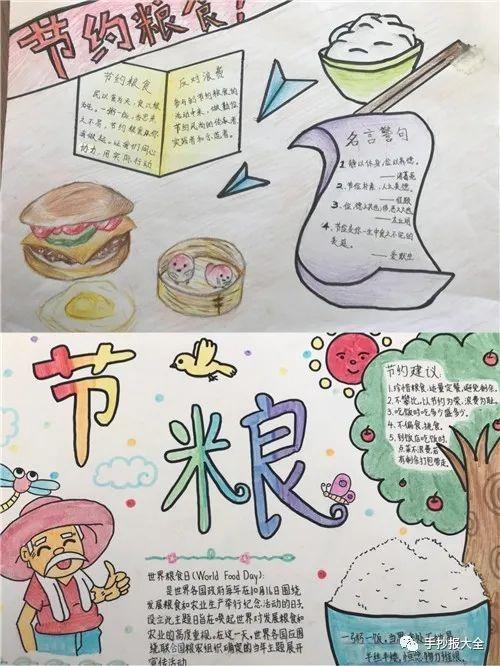 节约粮食!
节约粮食
民以食为天,食以粮
为先。一粥一饭,当思来
之不易,节约粮食从你
我做起。让我们同心
协力,用实际行动
反对浪费
参与到节约粮食的
活动中来,做勤俭
节约风尚的传承者
实践者和示范者。
名言警句
1、静以休身,俭以养德。
——诸葛亮
2、节俭朴素,人之美德。
3、俭,德之共也;侈,恶之大也
——左丘明
4、节俭是你一生中食之不完的
美筵。
——爱默生
节粮
节约建议
1.珍惜粮食,适量定餐,避免剩余。
2.不攀比,以节约为荣,浪费为耻。
3.吃饭时吃多少盛多少。
4.不偏食,挑食。
5.到饭店吃饭时,
点菜不浪费,若
有剩余打包带走。
世界粮食日(World Food Day):
是世界各国政府每年在10月16日围绕
发展粮食和农业生产举行纪念活动的日子。
设立此主题日旨在唤起世界对发展粮食和
农业的高度重视。在这一天,世界各国应围
绕联合国粮农组织确定的当年主题展开
宣传活动
一粥一饭,当思
手抄报大全